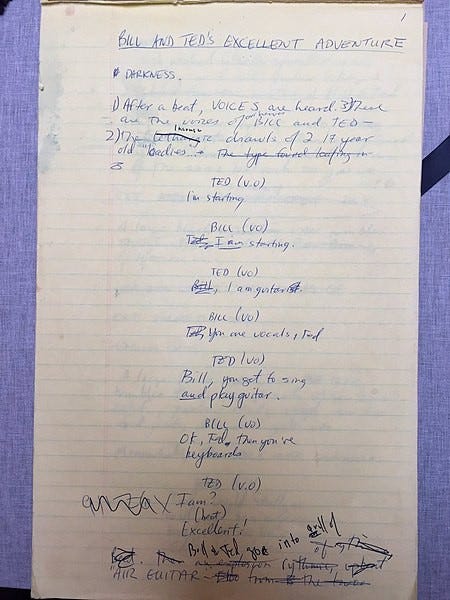 1
BILL AND TED'S EXCELLENT ADVENTURE
DARKNESS.
1) After a beat, VOICES are heard 3) These
are the voices of BILL and TED –
2) The drawls of 2 17 year
old The type found loafing in
TED (V.O)
I'm starting
BILL (VO)
Ted, I am starting.
TED (VO)
Bill, I am guitar
BILL (VO)
Ted, You are vocals, Ted
TED (VO)
Bill, you get to sing
and play guitar.
BILL (VO)
Ok, Ted, then you're
keyboards
TED (V.O)
I am?
(beat)
Excellent!
Bill & Ted go into
of
rythmic,
"AIR GUITAR from the